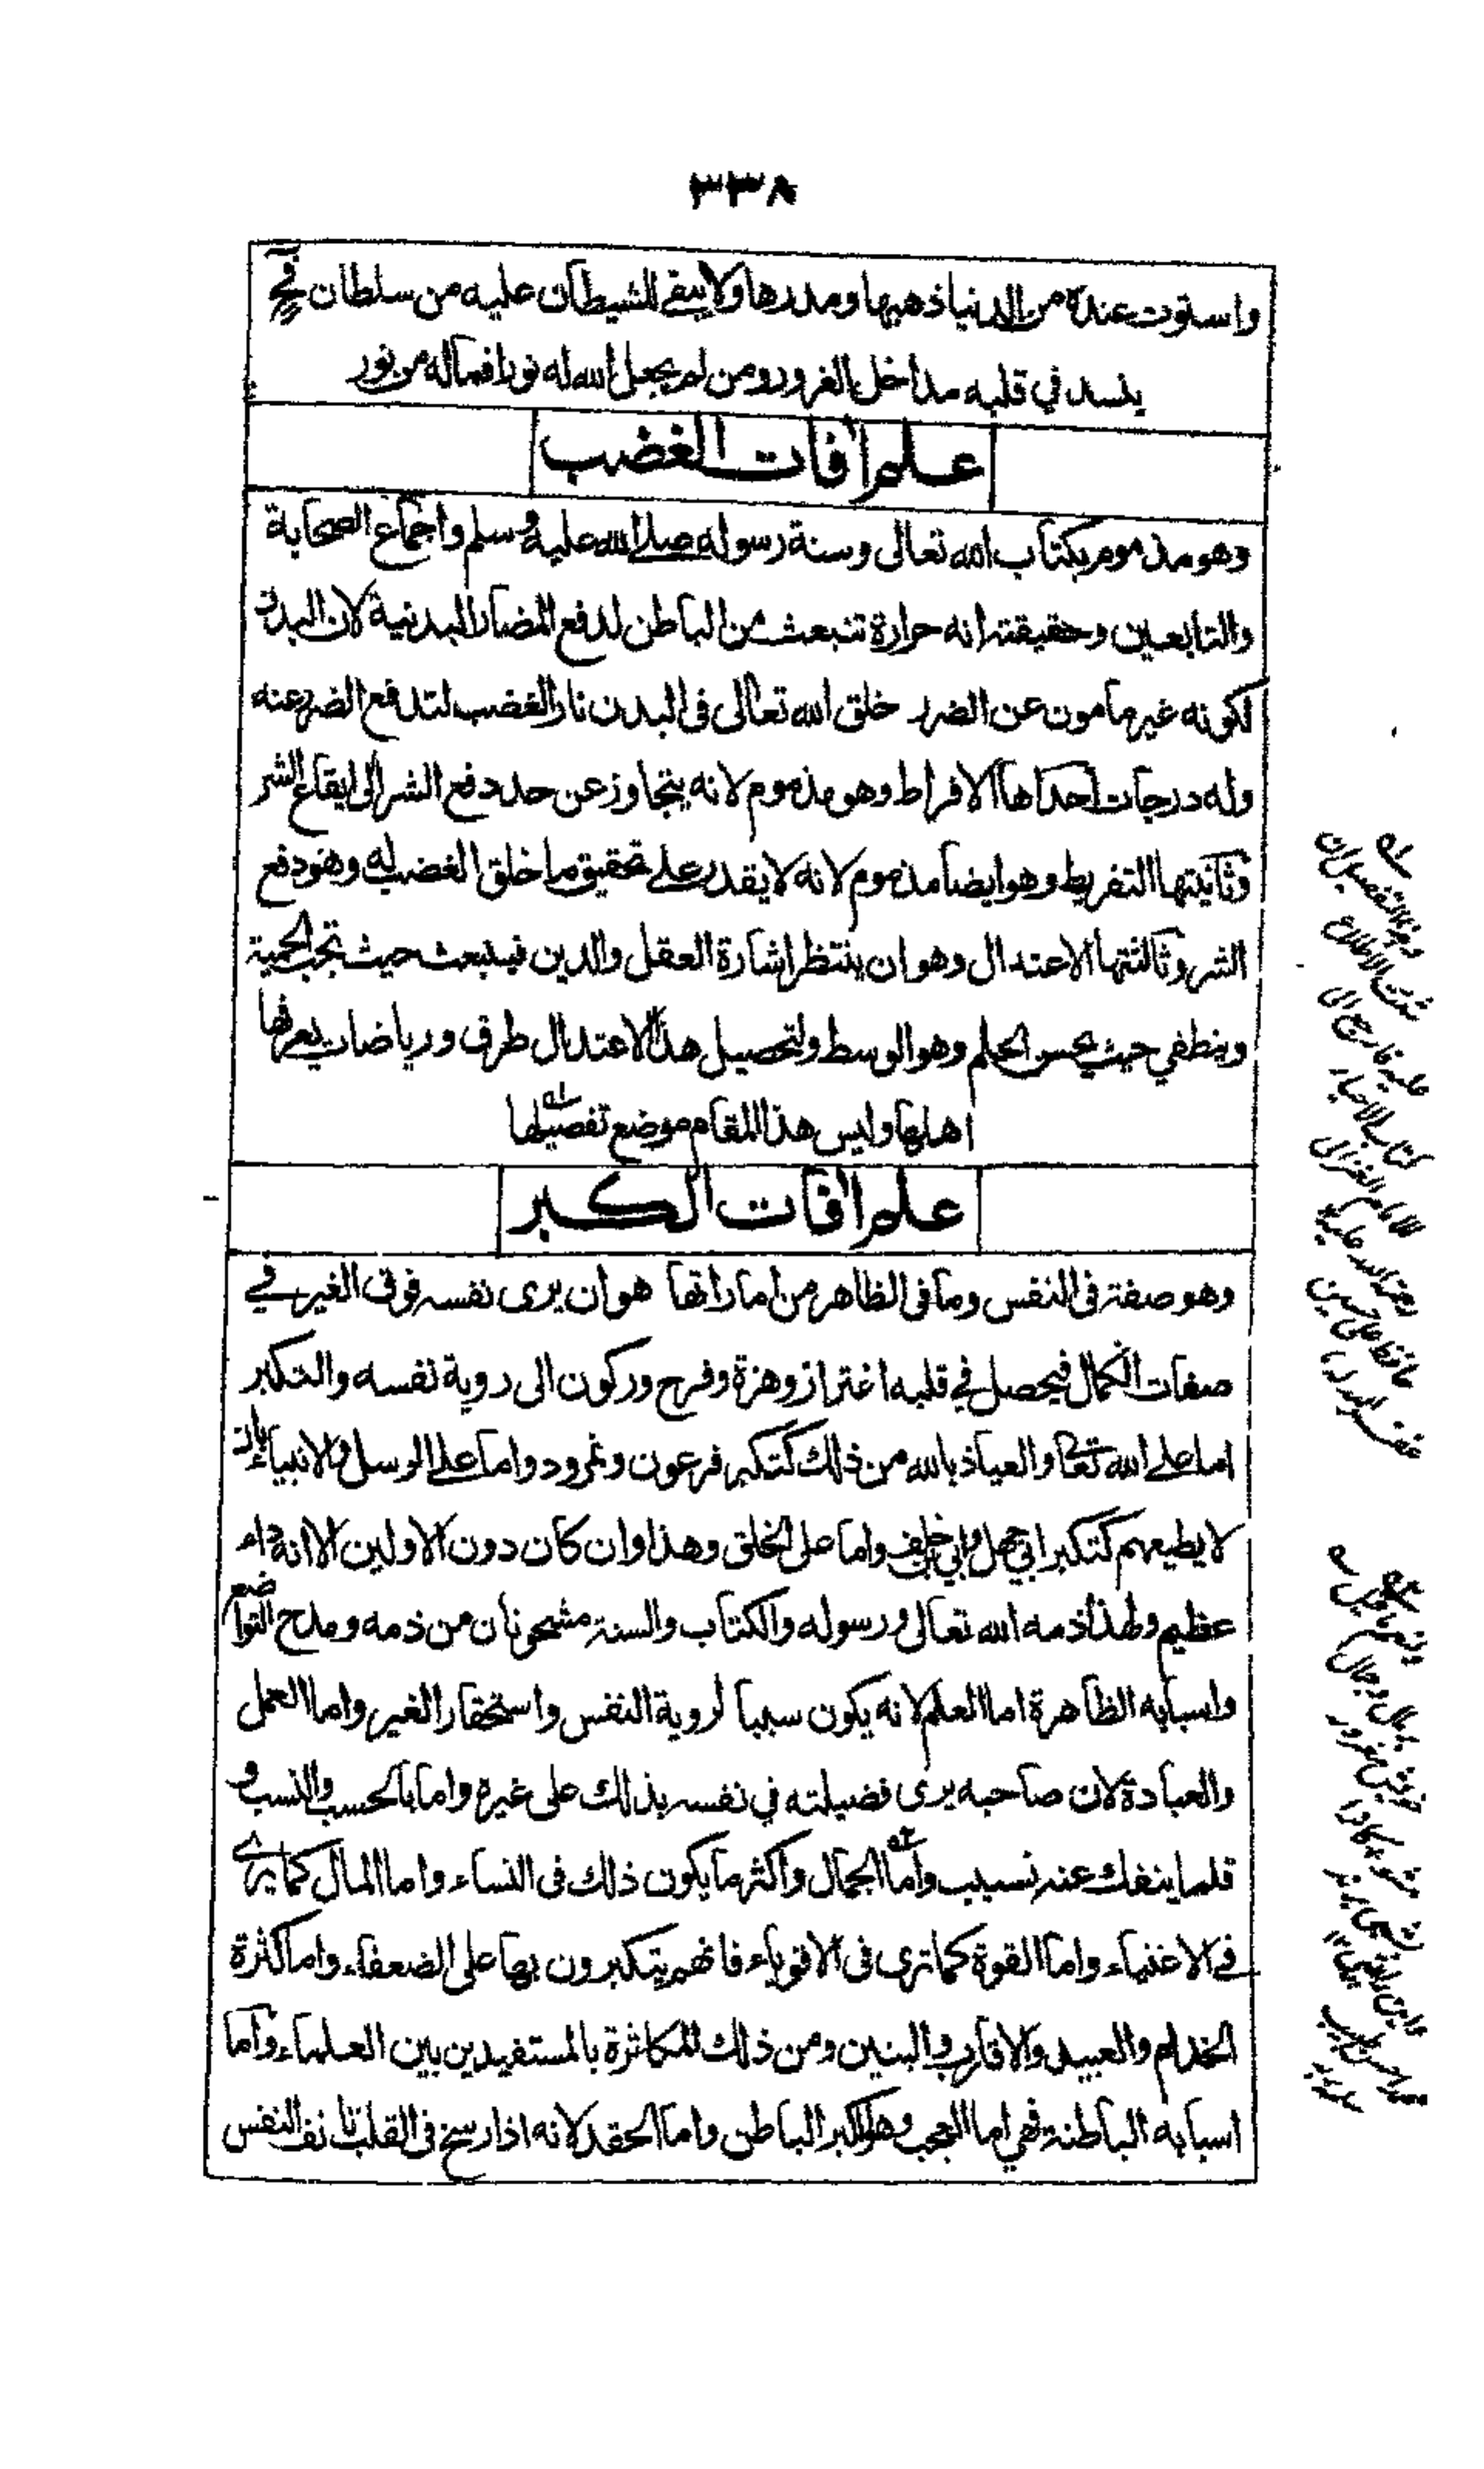 ٣٣٨
واستوت عنده من الدنيا ذهبها ومدرها ولا يبقى للشيطان عليه من سلطان فح
ينسد في قلبه مداخل الغرور ومن لم يجعل الله له نورا فما له من نور
علم افات الغضب
وهو مذموم بكتاب الله تعالى وسنة رسوله صلى الله عليه وسلم واجماع الصحابة
والتابعين وحقيقته انه حرارة تنبعث من الباطن لدفع المضار البدنية لان البدن
لكونه غير مامون عن الضرر خلق الله تعالى فى البدن نار الغضب لتدفع الضرر عنه
وله درجات احداها الافراط وهو مذموم لانه يتجاوز عن حد دفع الشر الى ايقاع الشر
وثانيتها التفريط وهو ايضا مذموم لانه لا يقدر على تحقيق ما خلق الغضب له وهو دفع
الشر وثالثتها الاعتدال وهو ان ينتظر اشارة العقل والدين فينبعث حيث تجب الحمية
وينطفي حيث يحسن الحلم وهو الوسط ولتحصيل هذا الاعتدال طرق ورياضات يعرفها
اهلها وليس هذا المقام موضع تفصيلها
علم افات الكبر
وهو صفة فى النفس وما فى الظاهر من اماراتها هو ان يرى نفسه فوق الغير في
صفات الكمال فيحصل في قلبه اغتراز وهزة وفرح وركون الى روية نفسه والتكبر
اما على الله تعالى والعياذ بالله من ذلك كتكبر فرعون ونمرود واما على الرسل والانبياء بان
لا يطيعهم كتكبر ابي جهل وابي خلف واما على الخلق وهذا وان كان دون الاولين الا انه داء
عظيم ولهذا ذمه الله تعالى ورسوله والكتاب والسنة مشحونان من ذمه ومدح التواضع
واسبابه الظاهرة اما العلم لانه يكون سببا لروية النفس واستحقار الغير واما العمل
والعبادة لان صاحبه يرى فضيلته في نفسه بذلك على غيره واما بالحسب والنسب و
قلما ينفك عنه نسيب واما الجمال واكثر ما يكون ذلك فى النساء واما المال كما يرى
في الاغنياء واما القوة كما ترى فى الاقوياء فانهم يتكبرون بها على الضعفاء واما كثرة
الخدام والعبيد والاقارب والبنين ومن ذلك المكاثرة بالمستفيدين بين العلماء واما
اسبابه الباطنة فهي اما العجب وهو الكبر الباطن واما الحقد لانه اذا رسخ فى القلب تانف النفس
كتاب الاحياء
للامام الغزالي